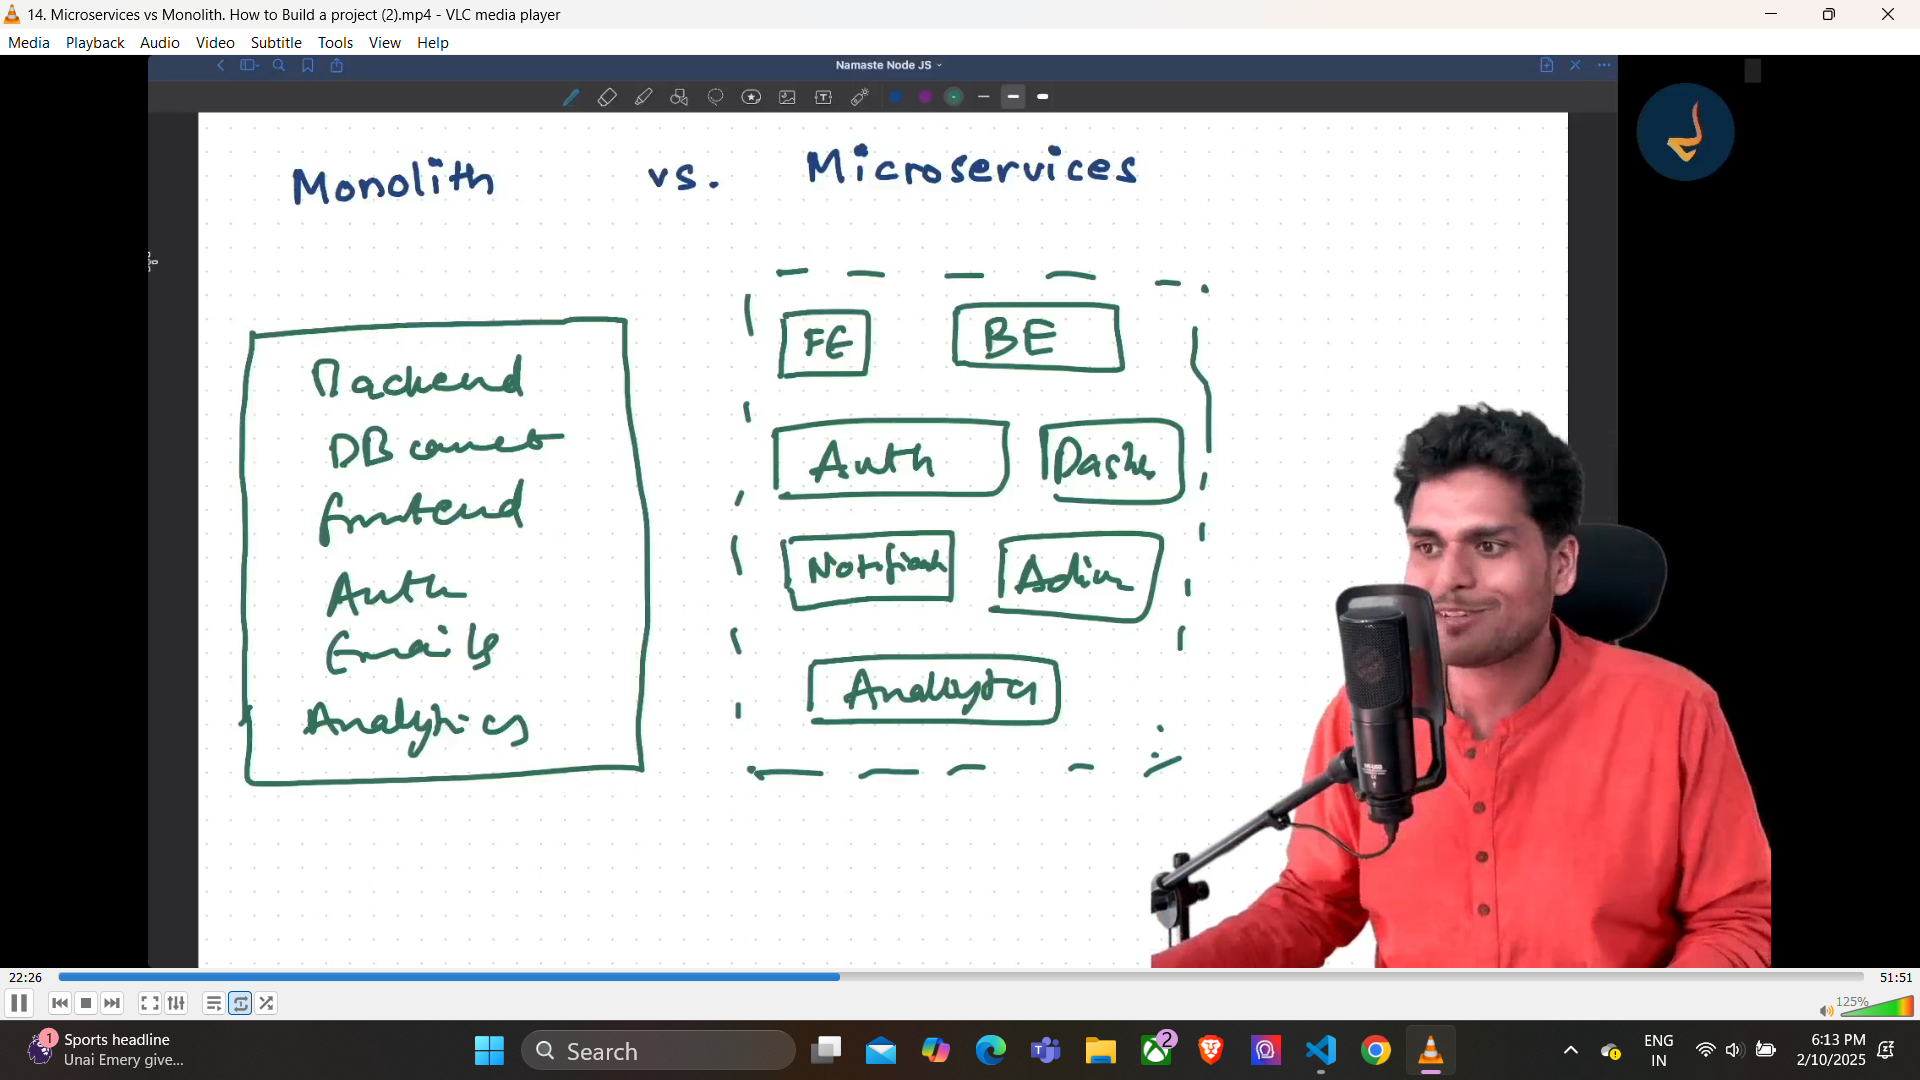 14. Microservices vs Monolith. How to Build a project (2).mp4 - VLC media player
Media Playback Audio Video Subtitle Tools View Help
Namaste Node JS
Monolith vs. Microservices
Backend
DB connect
frontend
Auth
Emails
Analytics
FE BE
Auth Dashb
Notification Admin
Analytics
22:26 51:51
125%
1 Sports headline
Unai Emery give...
Search
2
ENG
IN
6:13 PM
2/10/2025